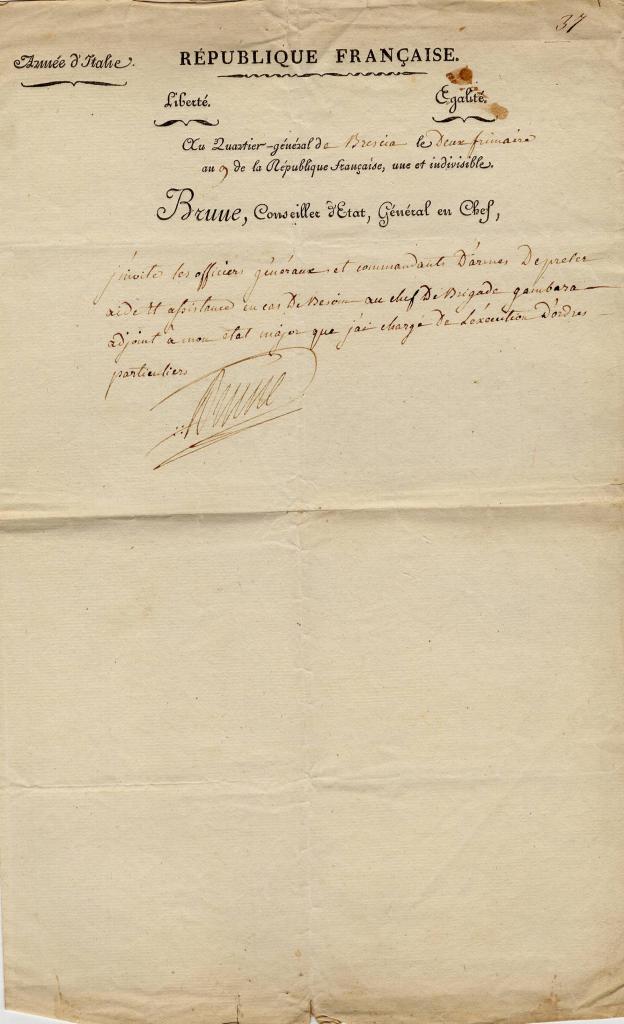 37
Armée d'Italie.
RÉPUBLIQUE FRANÇAISE.
Liberté. Égalité.
Au Quartier-général de Brescia le Deux frimaire
an 9 de la République française, une et indivisible.
Brune, Conseiller d'Etat, Général en Chef,
j'invite les officiers généraux et commandants D'armes De preter
aide et assistance en cas De Besoin au chef De Brigade gambara
adjoint à mon état major que j'ai chargé De L'exécution D'ordres
particuliers
Brune